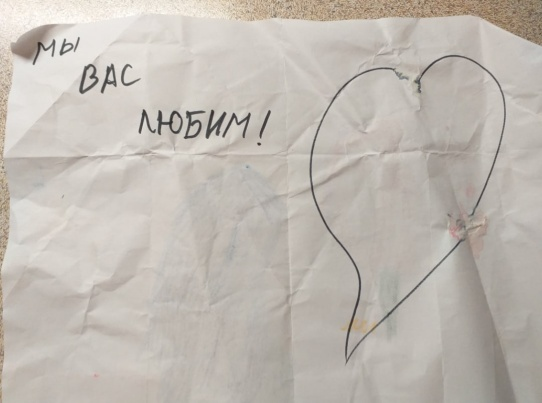 МЫ
ВАС
ЛЮБИМ!